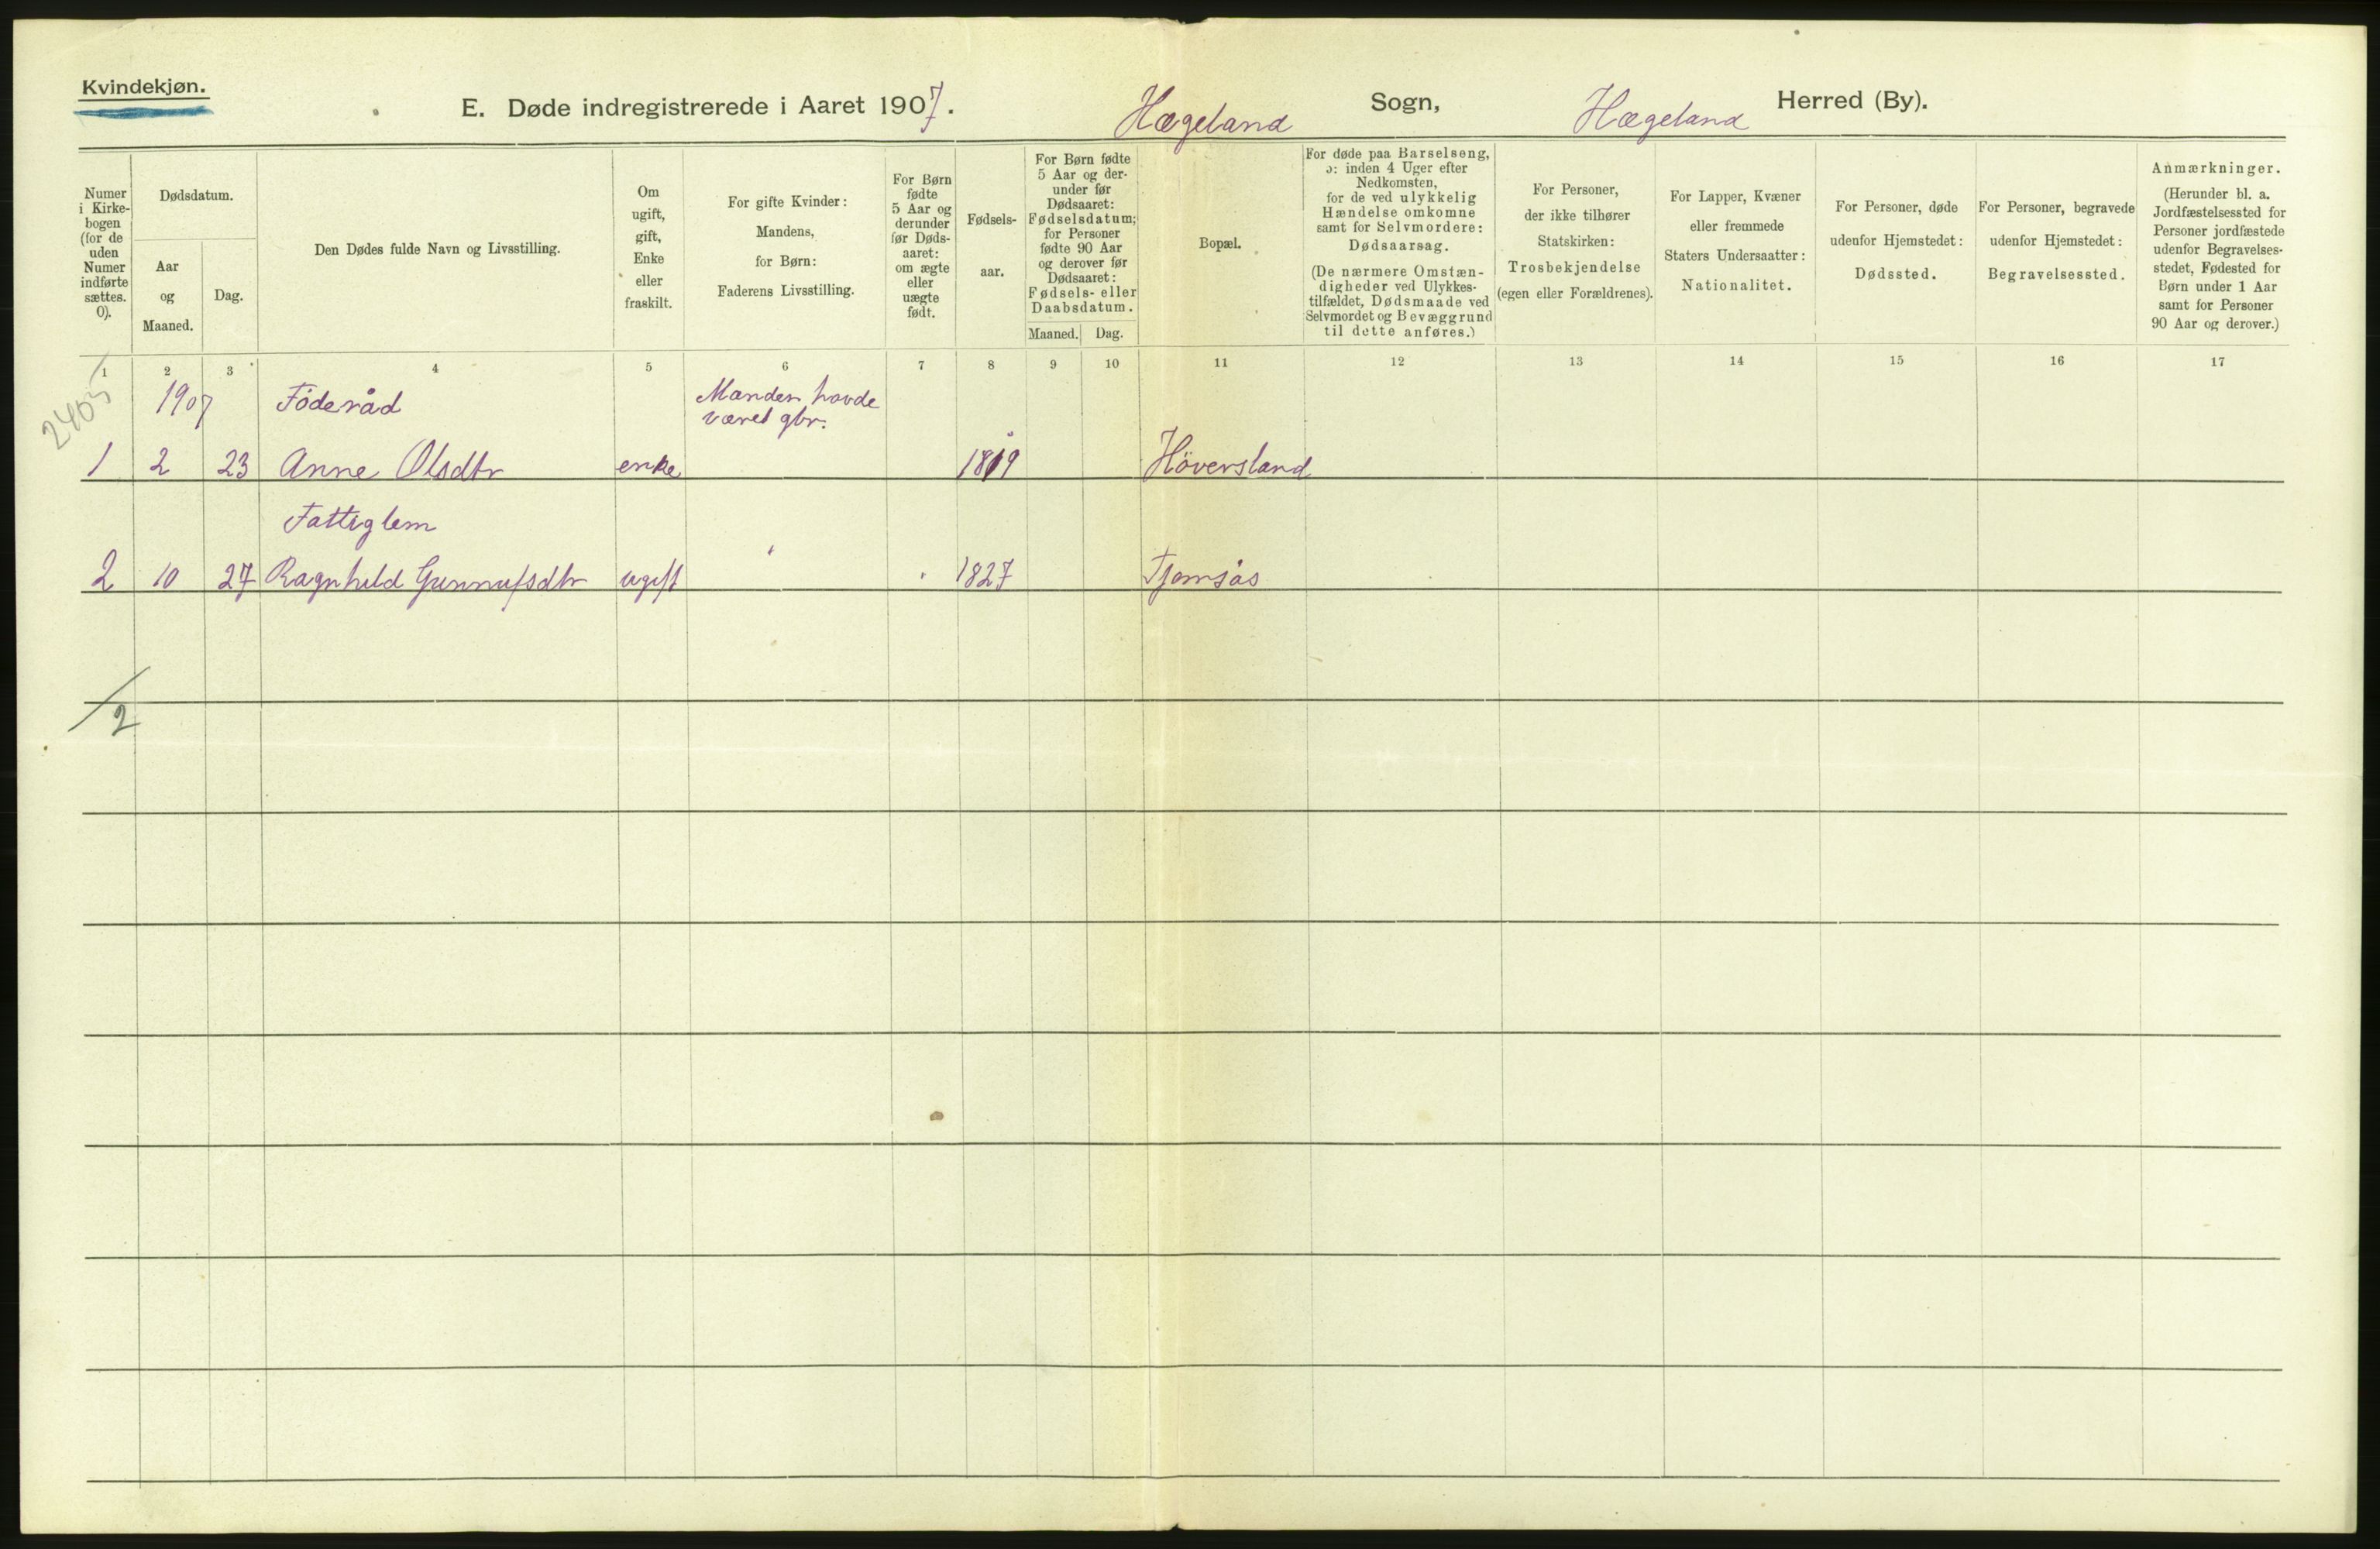 Kvindekjøn.
E. Døde indregistrerede i Aaret 1907. Hægeland Sogn, Hægeland Herred (By).
Numer
i Kirke-
bogen
(for de
uden
Numer
indførte
sættes.
0).
Dødsdatum.
Aar
og
Maaned.
Dag.
Den Dødes fulde Navn og Livsstilling.
Om
ugift,
gift,
Enke
eller
fraskilt.
For gifte Kvinder:
Mandens,
for Børn:
Faderens Livsstilling.
For Børn
fødte
5 Aar og
derunder
før Døds-
aaret:
om ægte
eller
uægte
født.
Fødsels-
aar.
For Børn fødte
5 Aar og der-
under før
Dødsaaret:
Fødselsdatum;
for Personer
fødte 90 Aar
og derover før
Dødsaaret:
Fødsels- eller
Daabsdatum.
Maaned. Dag.
Bopæl.
For døde paa Barselseng,
ɔ: inden 4 Uger efter
Nedkomsten,
for de ved ulykkelig
Hændelse omkomne
samt for Selvmordere:
Dødsaarsag.
(De nærmere Omstæn-
digheder ved Ulykkes-
tilfældet, Dødsmaade ved
Selvmordet og Bevæggrund
til dette anføres.)
For Personer,
der ikke tilhører
Statskirken:
Trosbekjendelse
(egen eller Forældrenes).
For Lapper, Kvæner
eller fremmede
Staters Undersaatter:
Nationalitet.
For Personer, døde
udenfor Hjemstedet:
Dødssted.
For Personer, begravede
udenfor Hjemstedet:
Begravelsessted.
Anmærkninger.
(Herunder bl. a.
Jordfæstelsessted for
Personer jordfæstede
udenfor Begravelses-
stedet, Fødested for
Børn under 1 Aar
samt for Personer
90 Aar og derover.)
1 2 3 4 5 6 7 8 9 10 11 12 13 14 15 16 17
1907 Föderåd Manden havde
været gbr.
1 2 23 Anne Olsdtr enke 1819 Höversland
Fattiglem
2 10 27 Ragnhild Gunnufsdtr ugift 1827 Tjomsås
/2